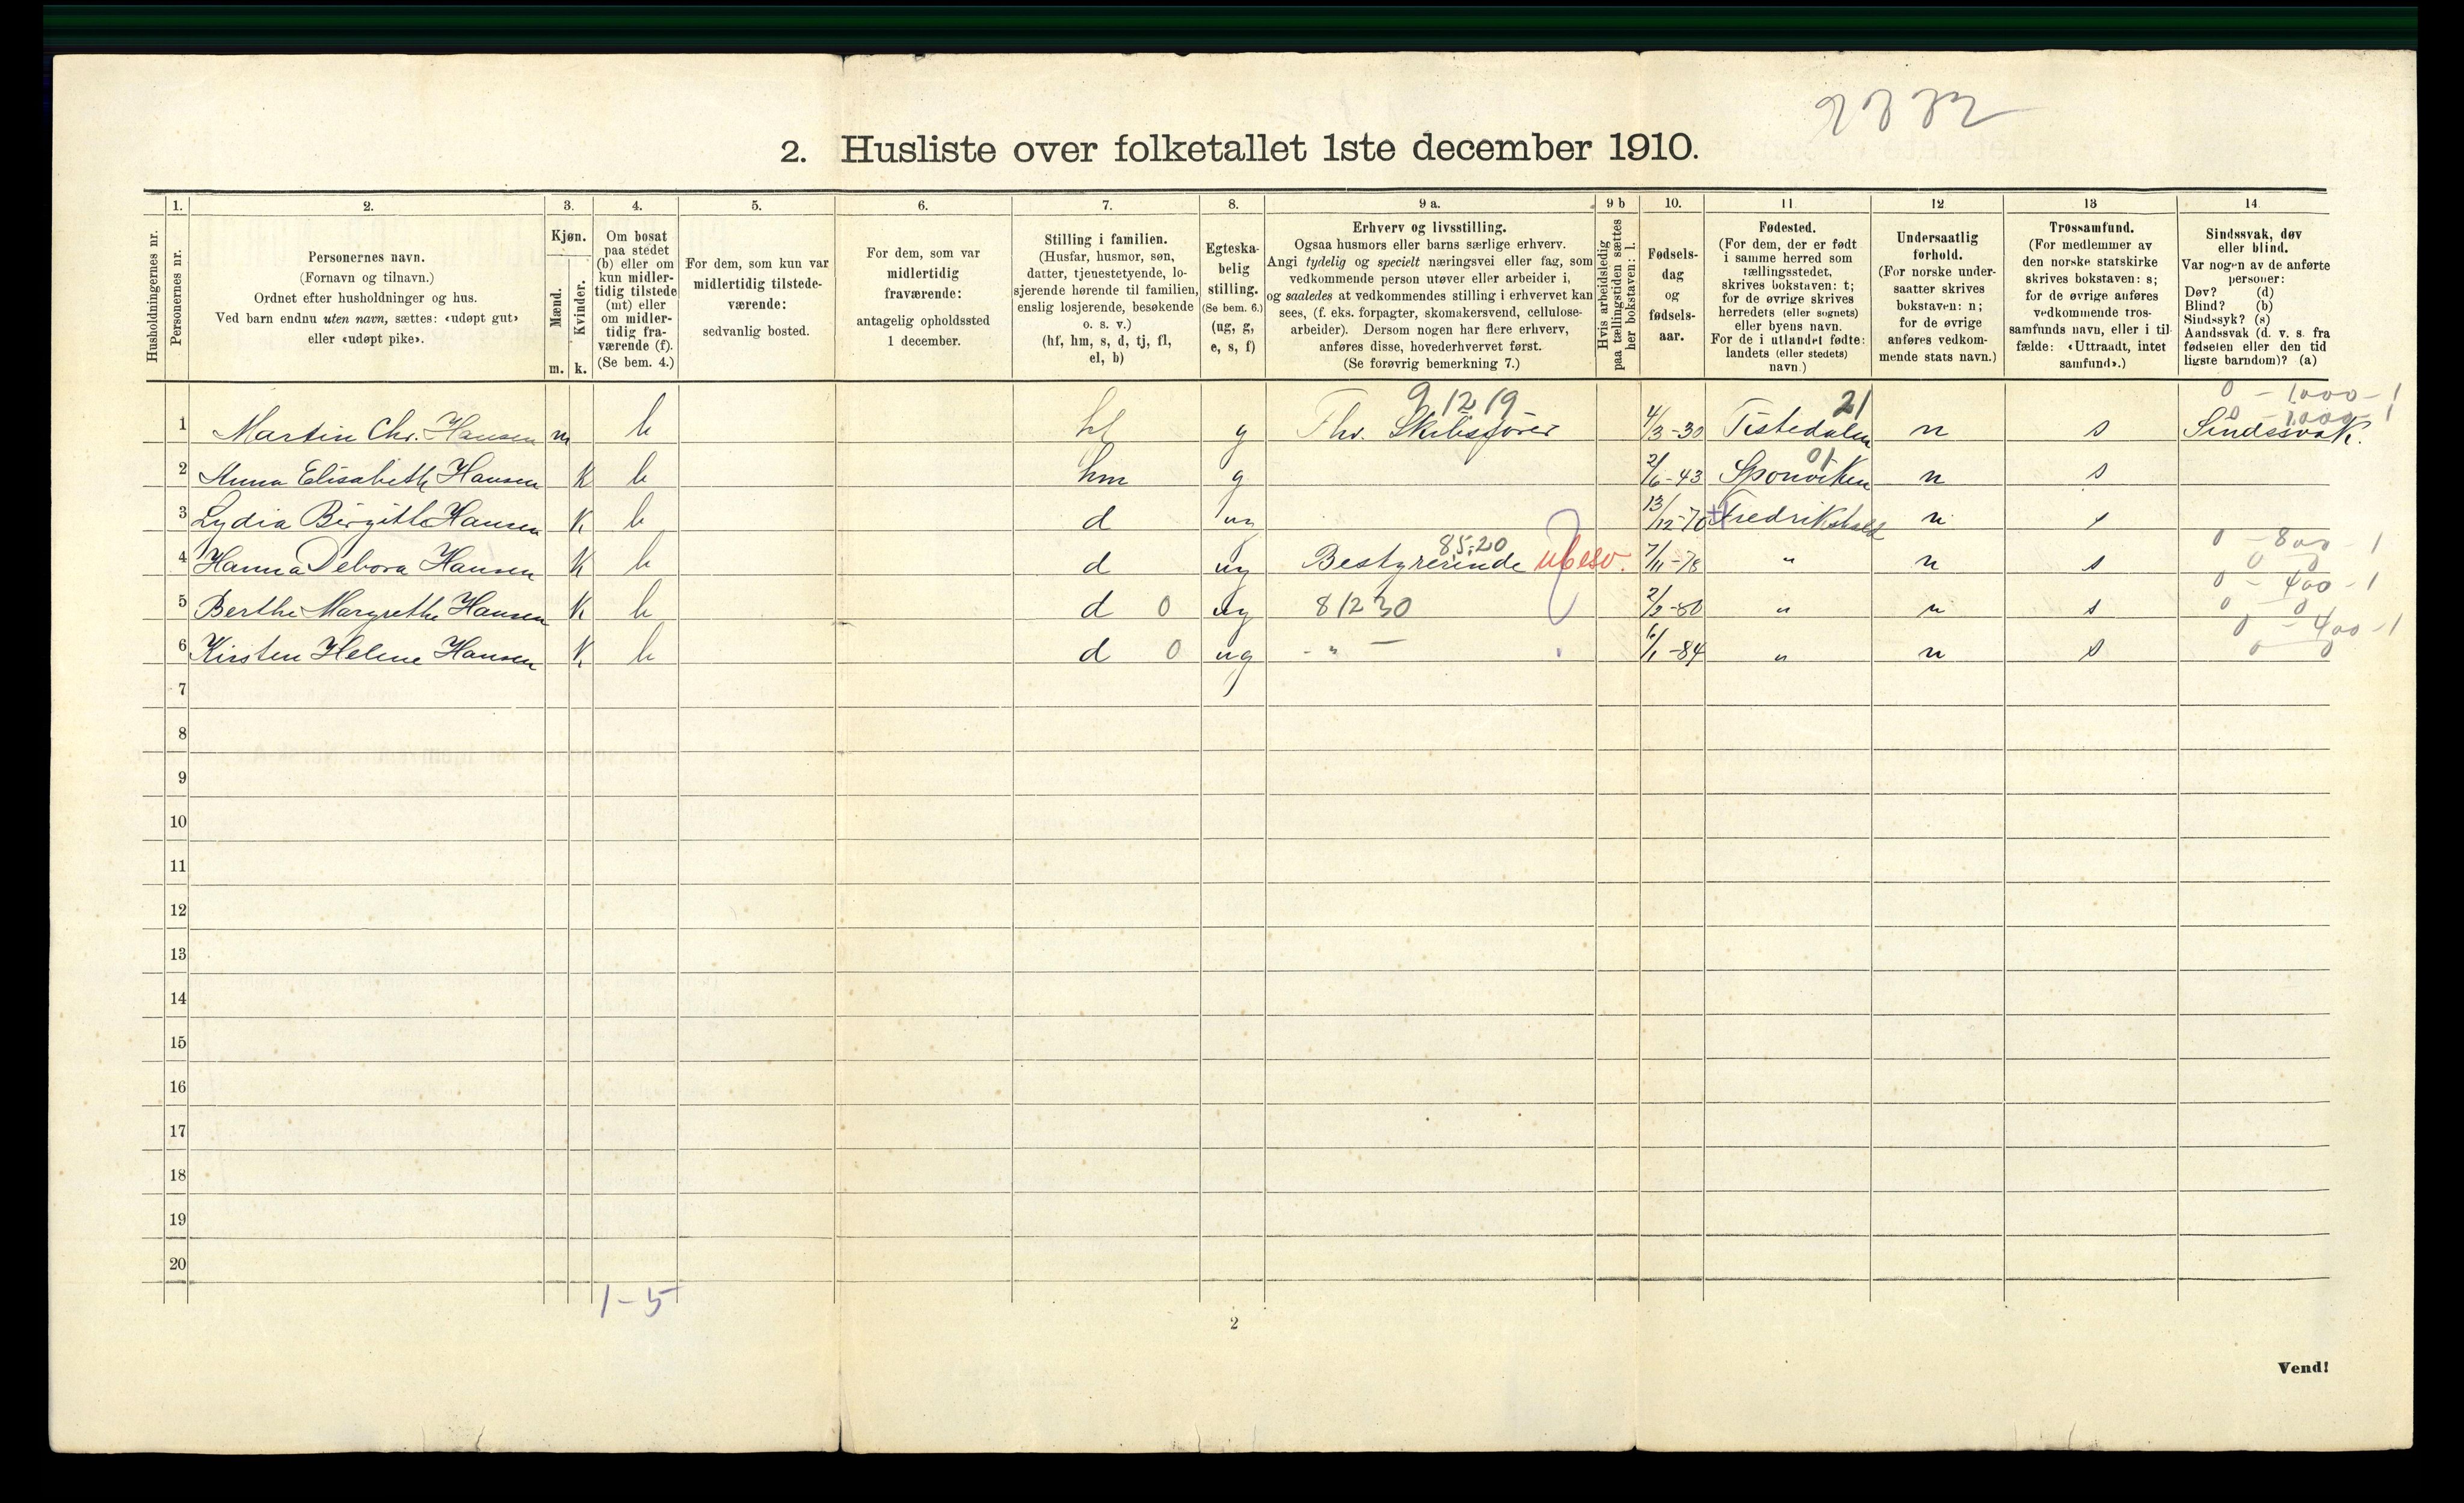 2332
2. Husliste over folketallet 1ste december 1910.
Husholdningernes nr.
1. Personernes nr.
2. Personernes navn.
(Fornavn og tilnavn.)
Ordnet efter husholdninger og hus.
Ved barn endnu uten navn, sættes: «udøpt gut»
eller «udøpt pike».
3. Kjøn.
Mænd. Kvinder.
m. k.
4. Om bosat
paa stedet
(b) eller om
kun midler-
tidig tilstede
(mt) eller
om midler-
tidig fra-
værende (f).
(Se bem. 4.)
5. For dem, som kun var
midlertidig tilstede-
værende:
sedvanlig bosted.
6. For dem, som var
midlertidig
fraværende:
antagelig opholdssted
1 december.
7. Stilling i familien.
(Husfar, husmor, søn,
datter, tjenestetyende, lo-
sjerende hørende til familien,
enslig losjerende, besøkende
o. s. v.)
(hf, hm, s, d, tj, fl,
el, b)
8. Egteska-
belig
stilling.
(Se bem. 6.)
(ug, g,
e, s, f)
9 a. Erhverv og livsstilling.
Ogsaa husmors eller barns særlige erhverv.
Angi tydelig og specielt næringsvei eller fag, som
vedkommende person utøver eller arbeider i,
og saaledes at vedkommendes stilling i erhvervet kan
sees, (f. eks. forpagter, skomakersvend, cellulose-
arbeider). Dersom nogen har flere erhverv,
anføres disse, hovederhvervet først.
(Se forøvrig bemerkning 7.)
9 b Hvis arbeidsledig
paa tællingstiden sættes
her bokstaven: l.
10. Fødsels-
dag
og
fødsels-
aar.
11. Fødested.
(For dem, der er født
i samme herred som
tællingsstedet,
skrives bokstaven: t;
for de øvrige skrives
herredets (eller sognets)
eller byens navn.
For de i utlandet fødte:
landets (eller stedets)
navn.)
12 Undersaatlig
forhold.
(For norske under-
saatter skrives
bokstaven: n;
for de øvrige
anføres vedkom-
mende stats navn.)
13 Trossamfund.
(For medlemmer av
den norske statskirke
skrives bokstaven: s;
for de øvrige anføres
vedkommende tros-
samfunds navn, eller i til-
fælde: «Uttraadt, intet
samfund».)
14 Sindssvak, døv
eller blind.
Var nogen av de anførte
personer:
Døv? (d)
Blind? (b)
Sindssyk? (s)
Aandssvak (d. v. s. fra
fødselen eller den tid-
ligste barndom)? (a)
9 12 19 21 0 - 1000 - 1
0 - 1000 - 1
1 Martin Chr. Hansen m b hf g Fhv. Skibsfører 4/3-30 Tistedalen n s Sindssvak.
01
2 Anna Elisabeth Hansen K b hm g 2/6-43 Sponviken n s
3 Lydia Birgitte Hansen K b d ug 13/12-70 Fredrikshald n s
85.20 0 - 800 - 1
4 Hanna Debora Hansen K b d ug Bestyrerinde ubesv. 7/11-78 " n s 0 0
0 - 400 - 1
5 Berthe Margrethe Hansen K b d 0 ug 81230 2/2-80 " n s 0 0
0 - 400 - 1
6 Kirsten Helene Hansen K b d 0 ug - " - 6/1-84 " n s 0 0
7
8
9
10
11
12
13
14
15
16
17
18
19
20
1-5
2
Vend!